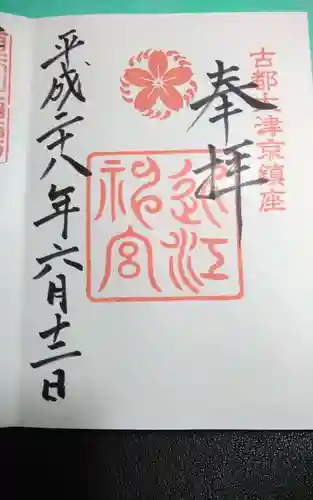 古都大津京鎮座
奉拝
近江
神宮
平成二十八年六月十二日